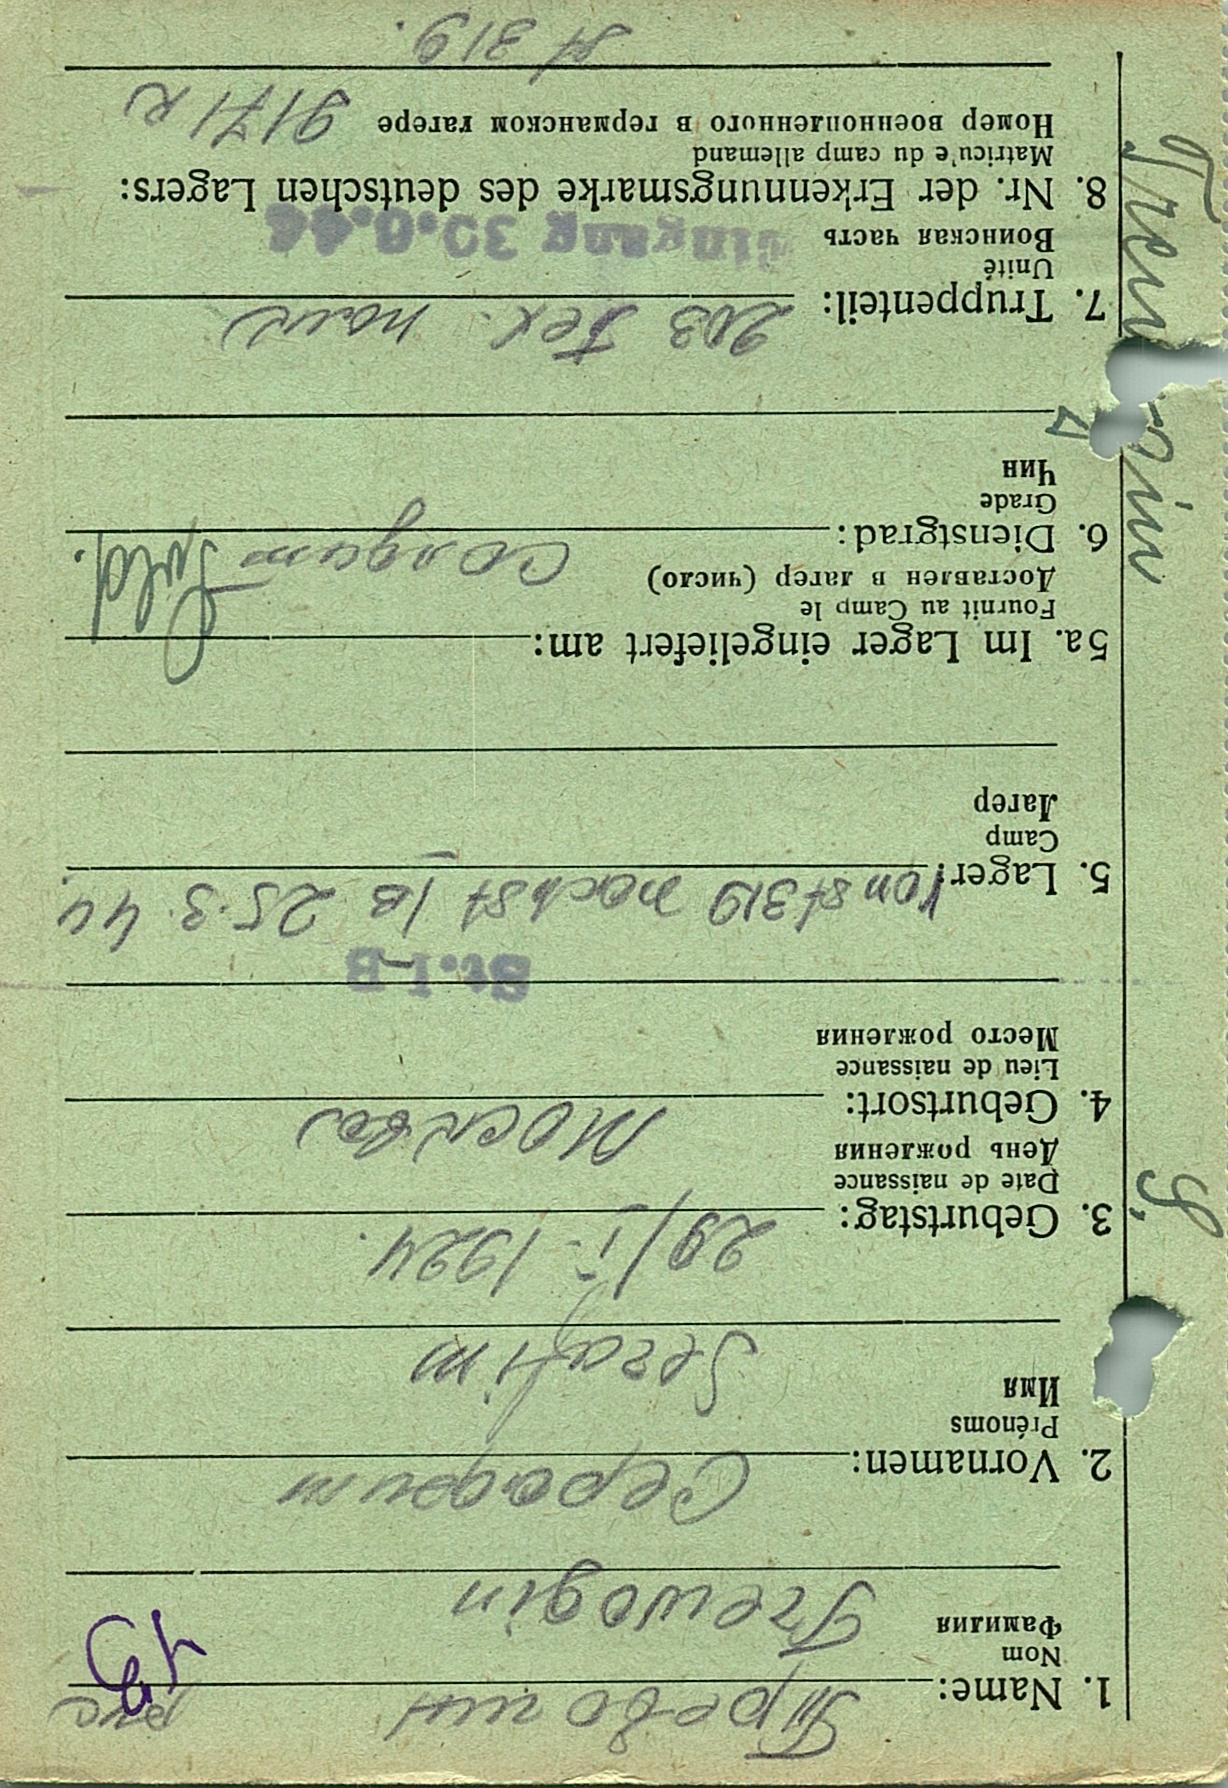 1. Name: Тревогин рус
Nom
Фамилия Trewogin
13
2. Vornamen: Серафим
Prénoms
Имя Serafim
3. Geburtstag: 29/I-1924.
Date de naissance
День рождения
4. Geburtsort: Москва
Lieu de naissance
Место рождения
St.I-B
5. Lager: Von St 319 nach St IB 25.3.44
Camp
Лагер
5a. Im Lager eingeliefert am:
Fournit au Camp le
Доставлен в лагер (число)
6. Dienstgrad: Солдат Sold.
Grade
Чин
7. Truppenteil: 203
Unité
Воинская часть
Eingang 30.6.44
8. Nr. der Erkennungsmarke des deutschen Lagers:
Matricu'e du camp allemand
Номер военнопленного в германском лагере 9171 R
St 319.
S.